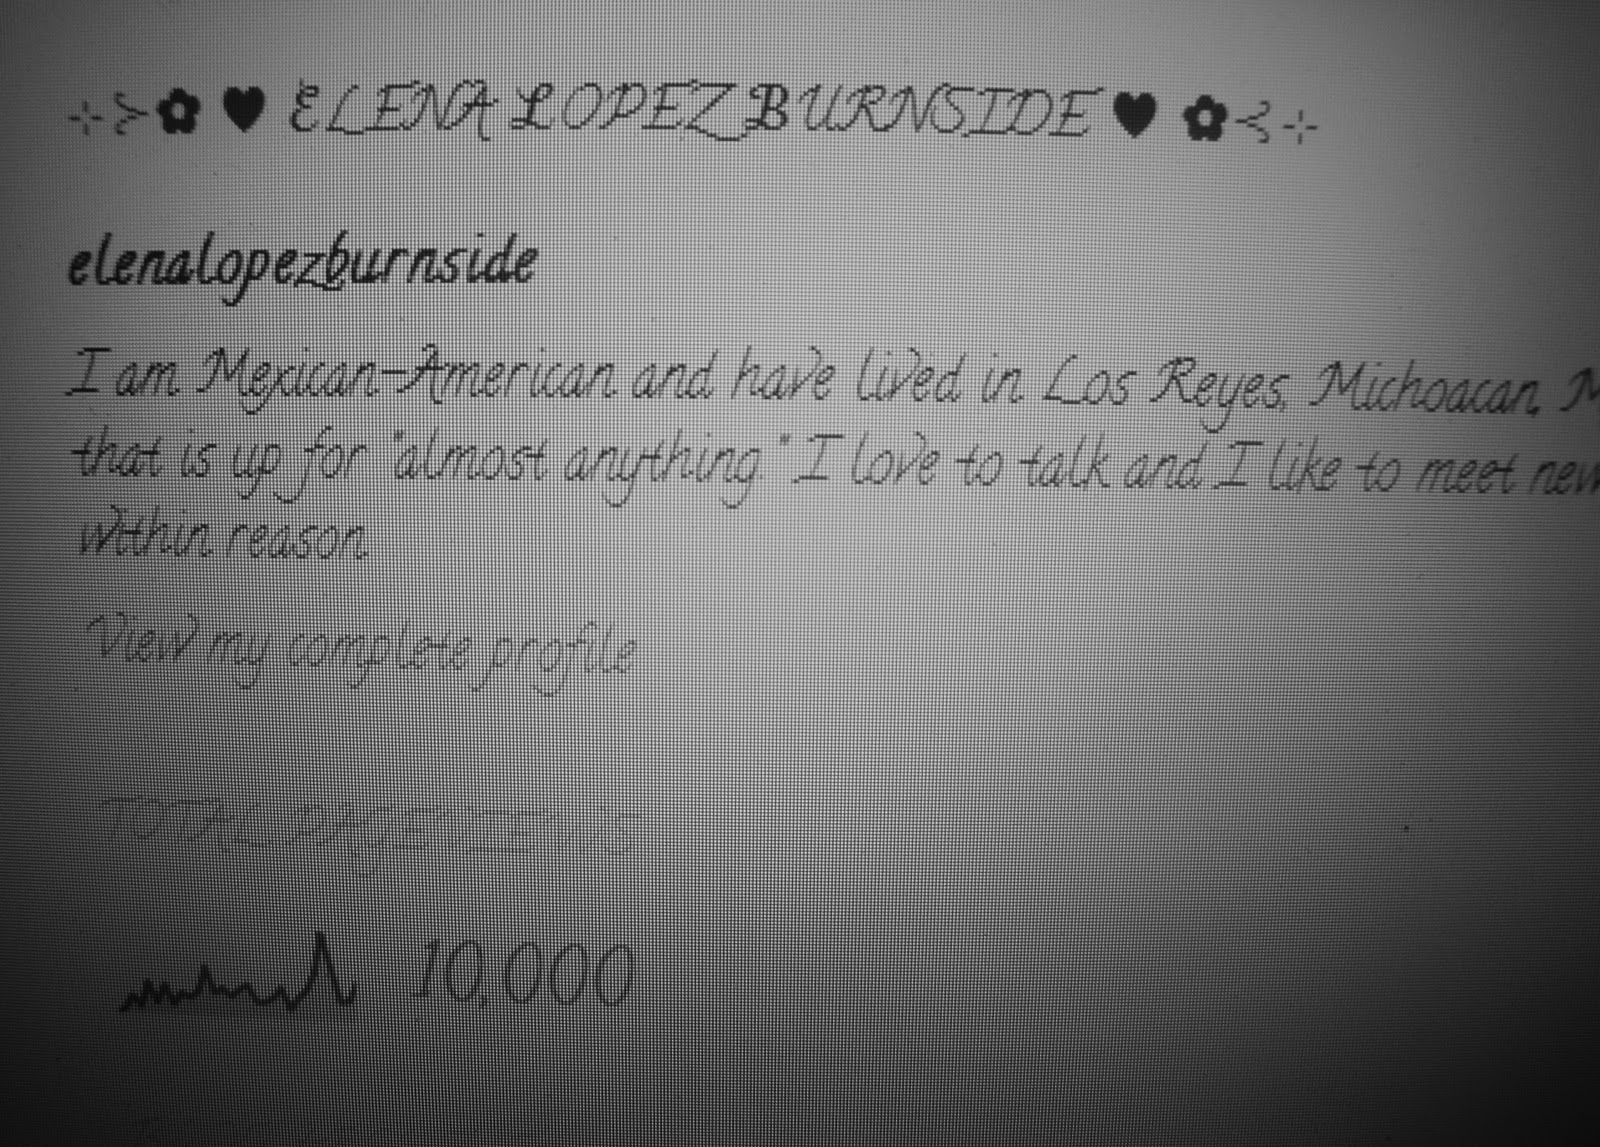 ⊹⊱✿ ♥ ELENA LOPEZ BURNSIDE ♥ ✿⊰⊹
elenalopezburnside
I am Mexican-American and have lived in Los Reyes, Michoacan, M
that is up for "almost anything." I love to talk and I like to meet new
within reason.
View my complete profile
TOTAL PAGEVIEWS
10,000